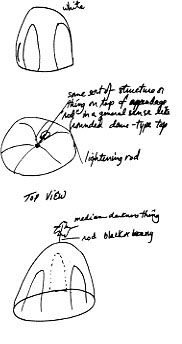 white
some sort of structure or
thing on top of appendage
rod in a general sense like
rounded dome-type top
lightening rod
TOP VIEW
median-darkness thing
rod black & heavy